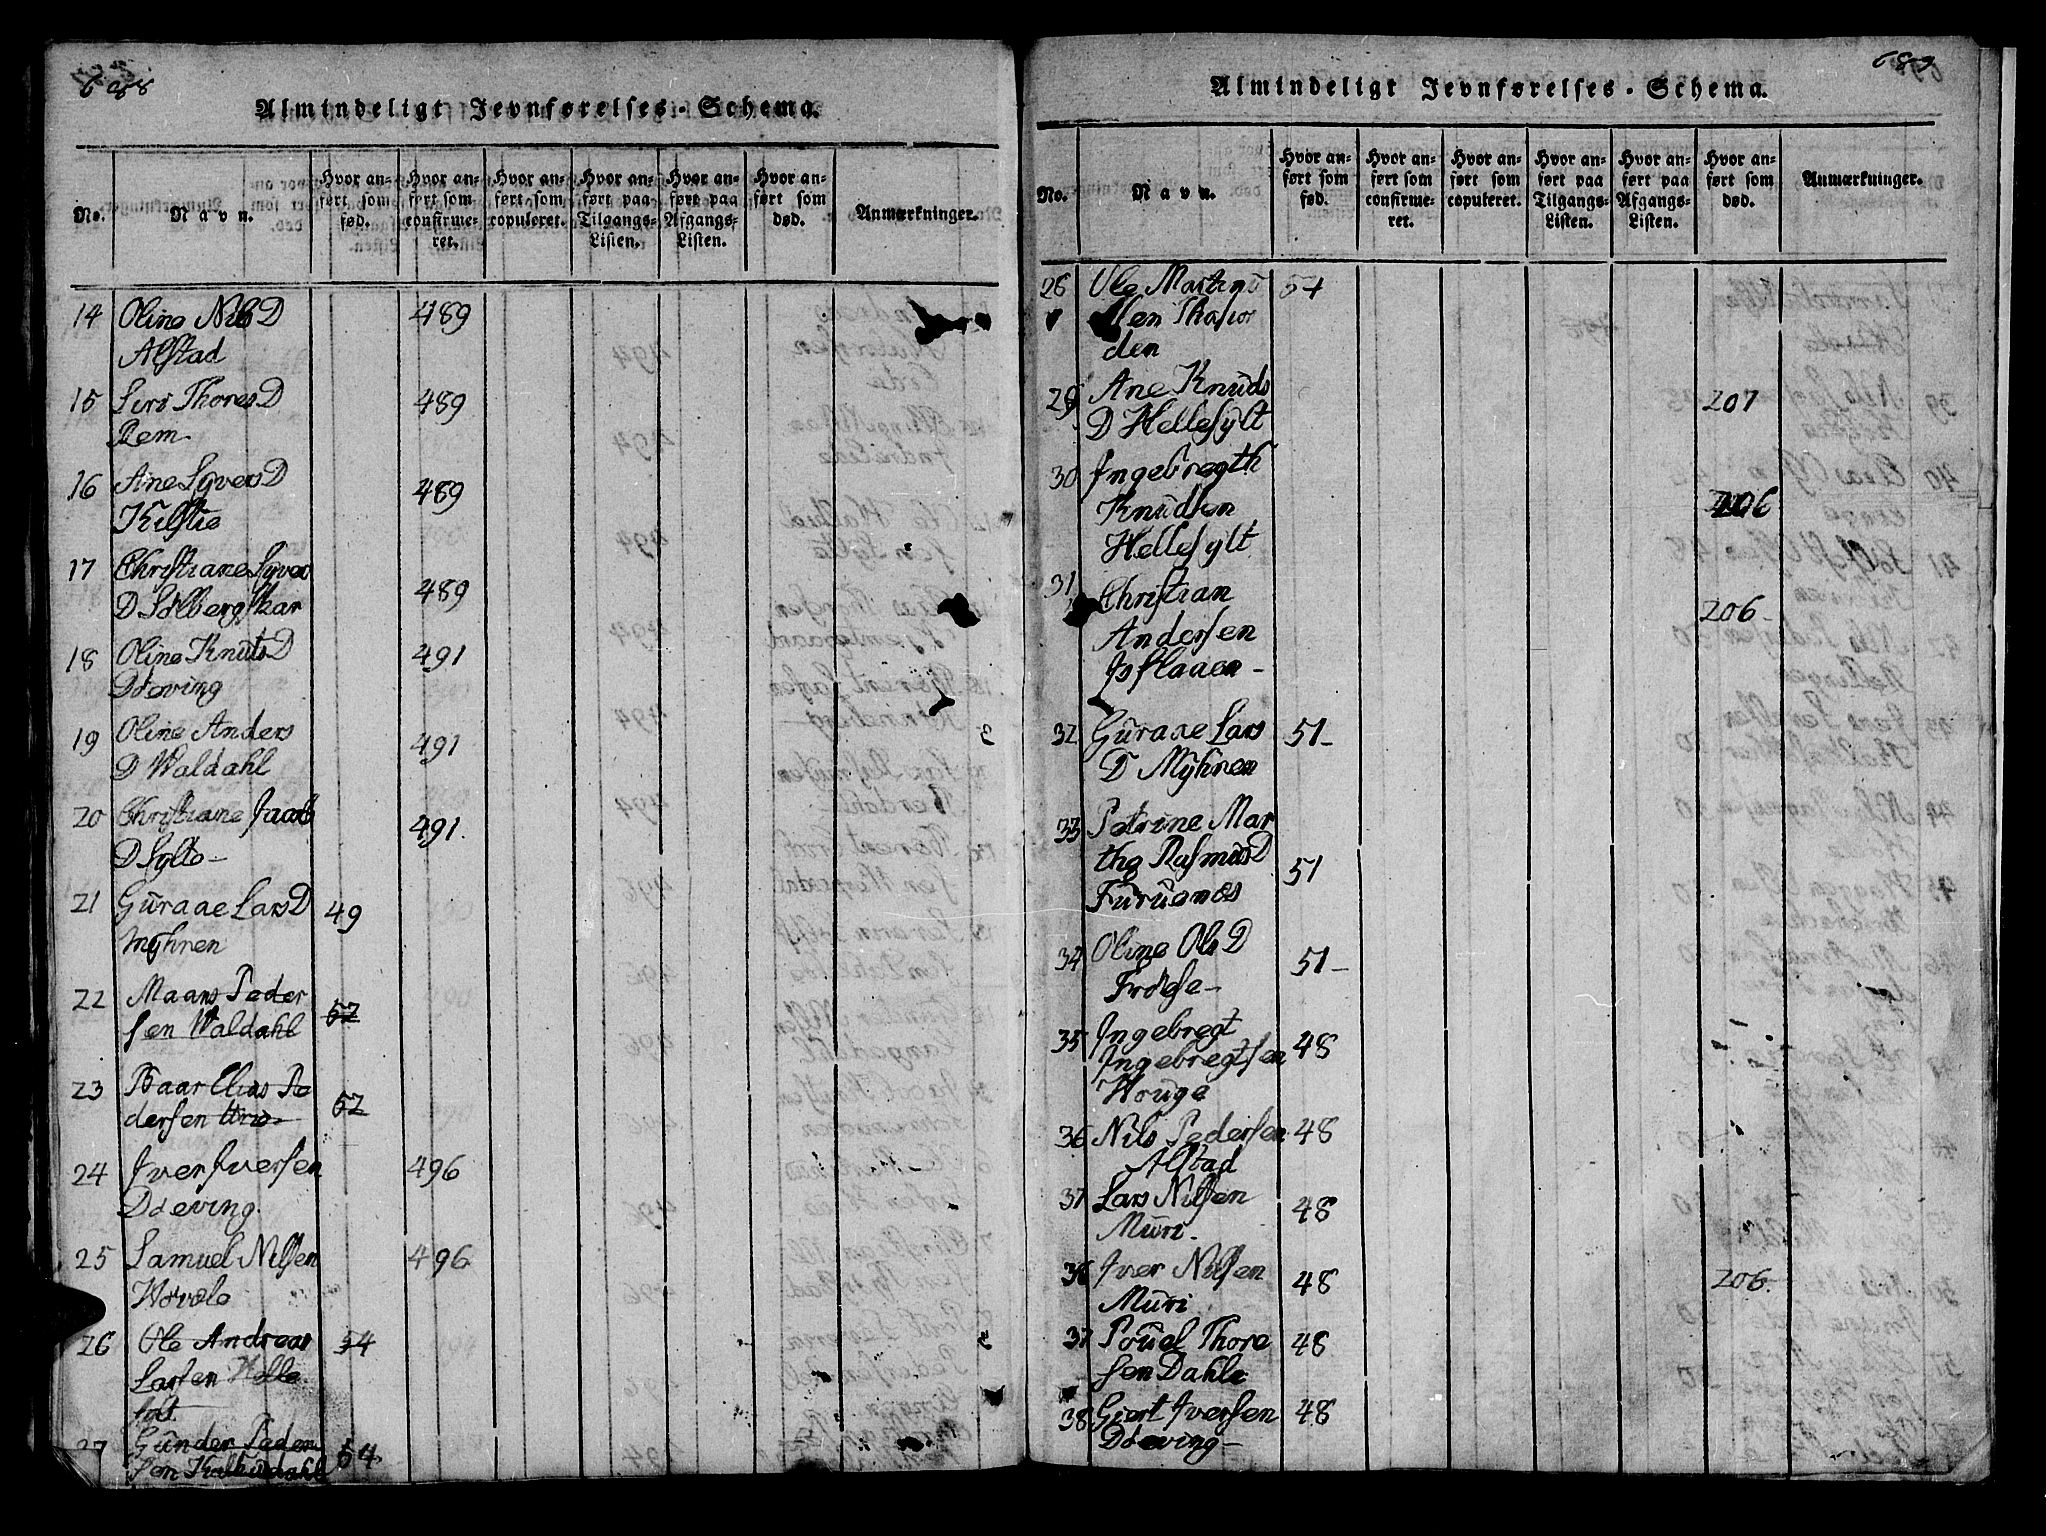 688
Almindeligt Jevnførelses-Schema.
No. Navn. Hvor anført som fød. Hvor anført som confirmeret. Hvor anført som copuleret. Hvor anført paa Tilgangs-Listen. Hvor anført paa Afgangs-Listen. Hvor anført som død. Anmærkninger.
14 Oline Nils D 489
Alstad
15 Siri Thores D 489
Rem
16 Ane Syvers D 489
Kilstie
17 Christiane Syver 489
D Solbergskar
18 Oline Knuts D 491
Døeving
19 Oline Anders 491
D Waldahl
20 Christiane Jacob 491.
D Sylte-
21 Guraae Lars D 49
Myhren
22 Maans Peder
sen Waldahl 52
23 Baar Elias Pe 52
dersen
24 Iver Iversen 496
Døeving.
25 Samuel Nilsen 496
26 Ole Andreas 54
Larsen Helle
27 Gunder Peder 54
sen
689
Almindeligt Jevnførelses-Schema.
No. Navn. Hvor anført som fød. Hvor anført som confirmeret. Hvor anført som copuleret. Hvor anført paa Tilgangs-Listen. Hvor anført paa Afgangs-Listen. Hvor anført som død. Anmærkninger.
28 Ole Martinu 54
sen Thafior
den
29 Ane Knuds 207
D Hellesylt
30 Ingebregth
Knudsen 206
Hellesylt
31 Christian 206-
Andersen
32 Guraae Lars 51-
D Myhren
33 Petrine Mar
the Rasmus D 51
Furuenæs
34 Oline Ols D 51-
Frøese-
35 Ingebregt 48
Ingebregtsen
Houge
36 Nils Pedersen 48
Alstad
37 Lars Nilsen 48
Muri.
36 Iver Nilsen 48 206.
Muri
37 Pouel Thore 48
sen Dahle
38 Giert Iversen 48
Døeving-